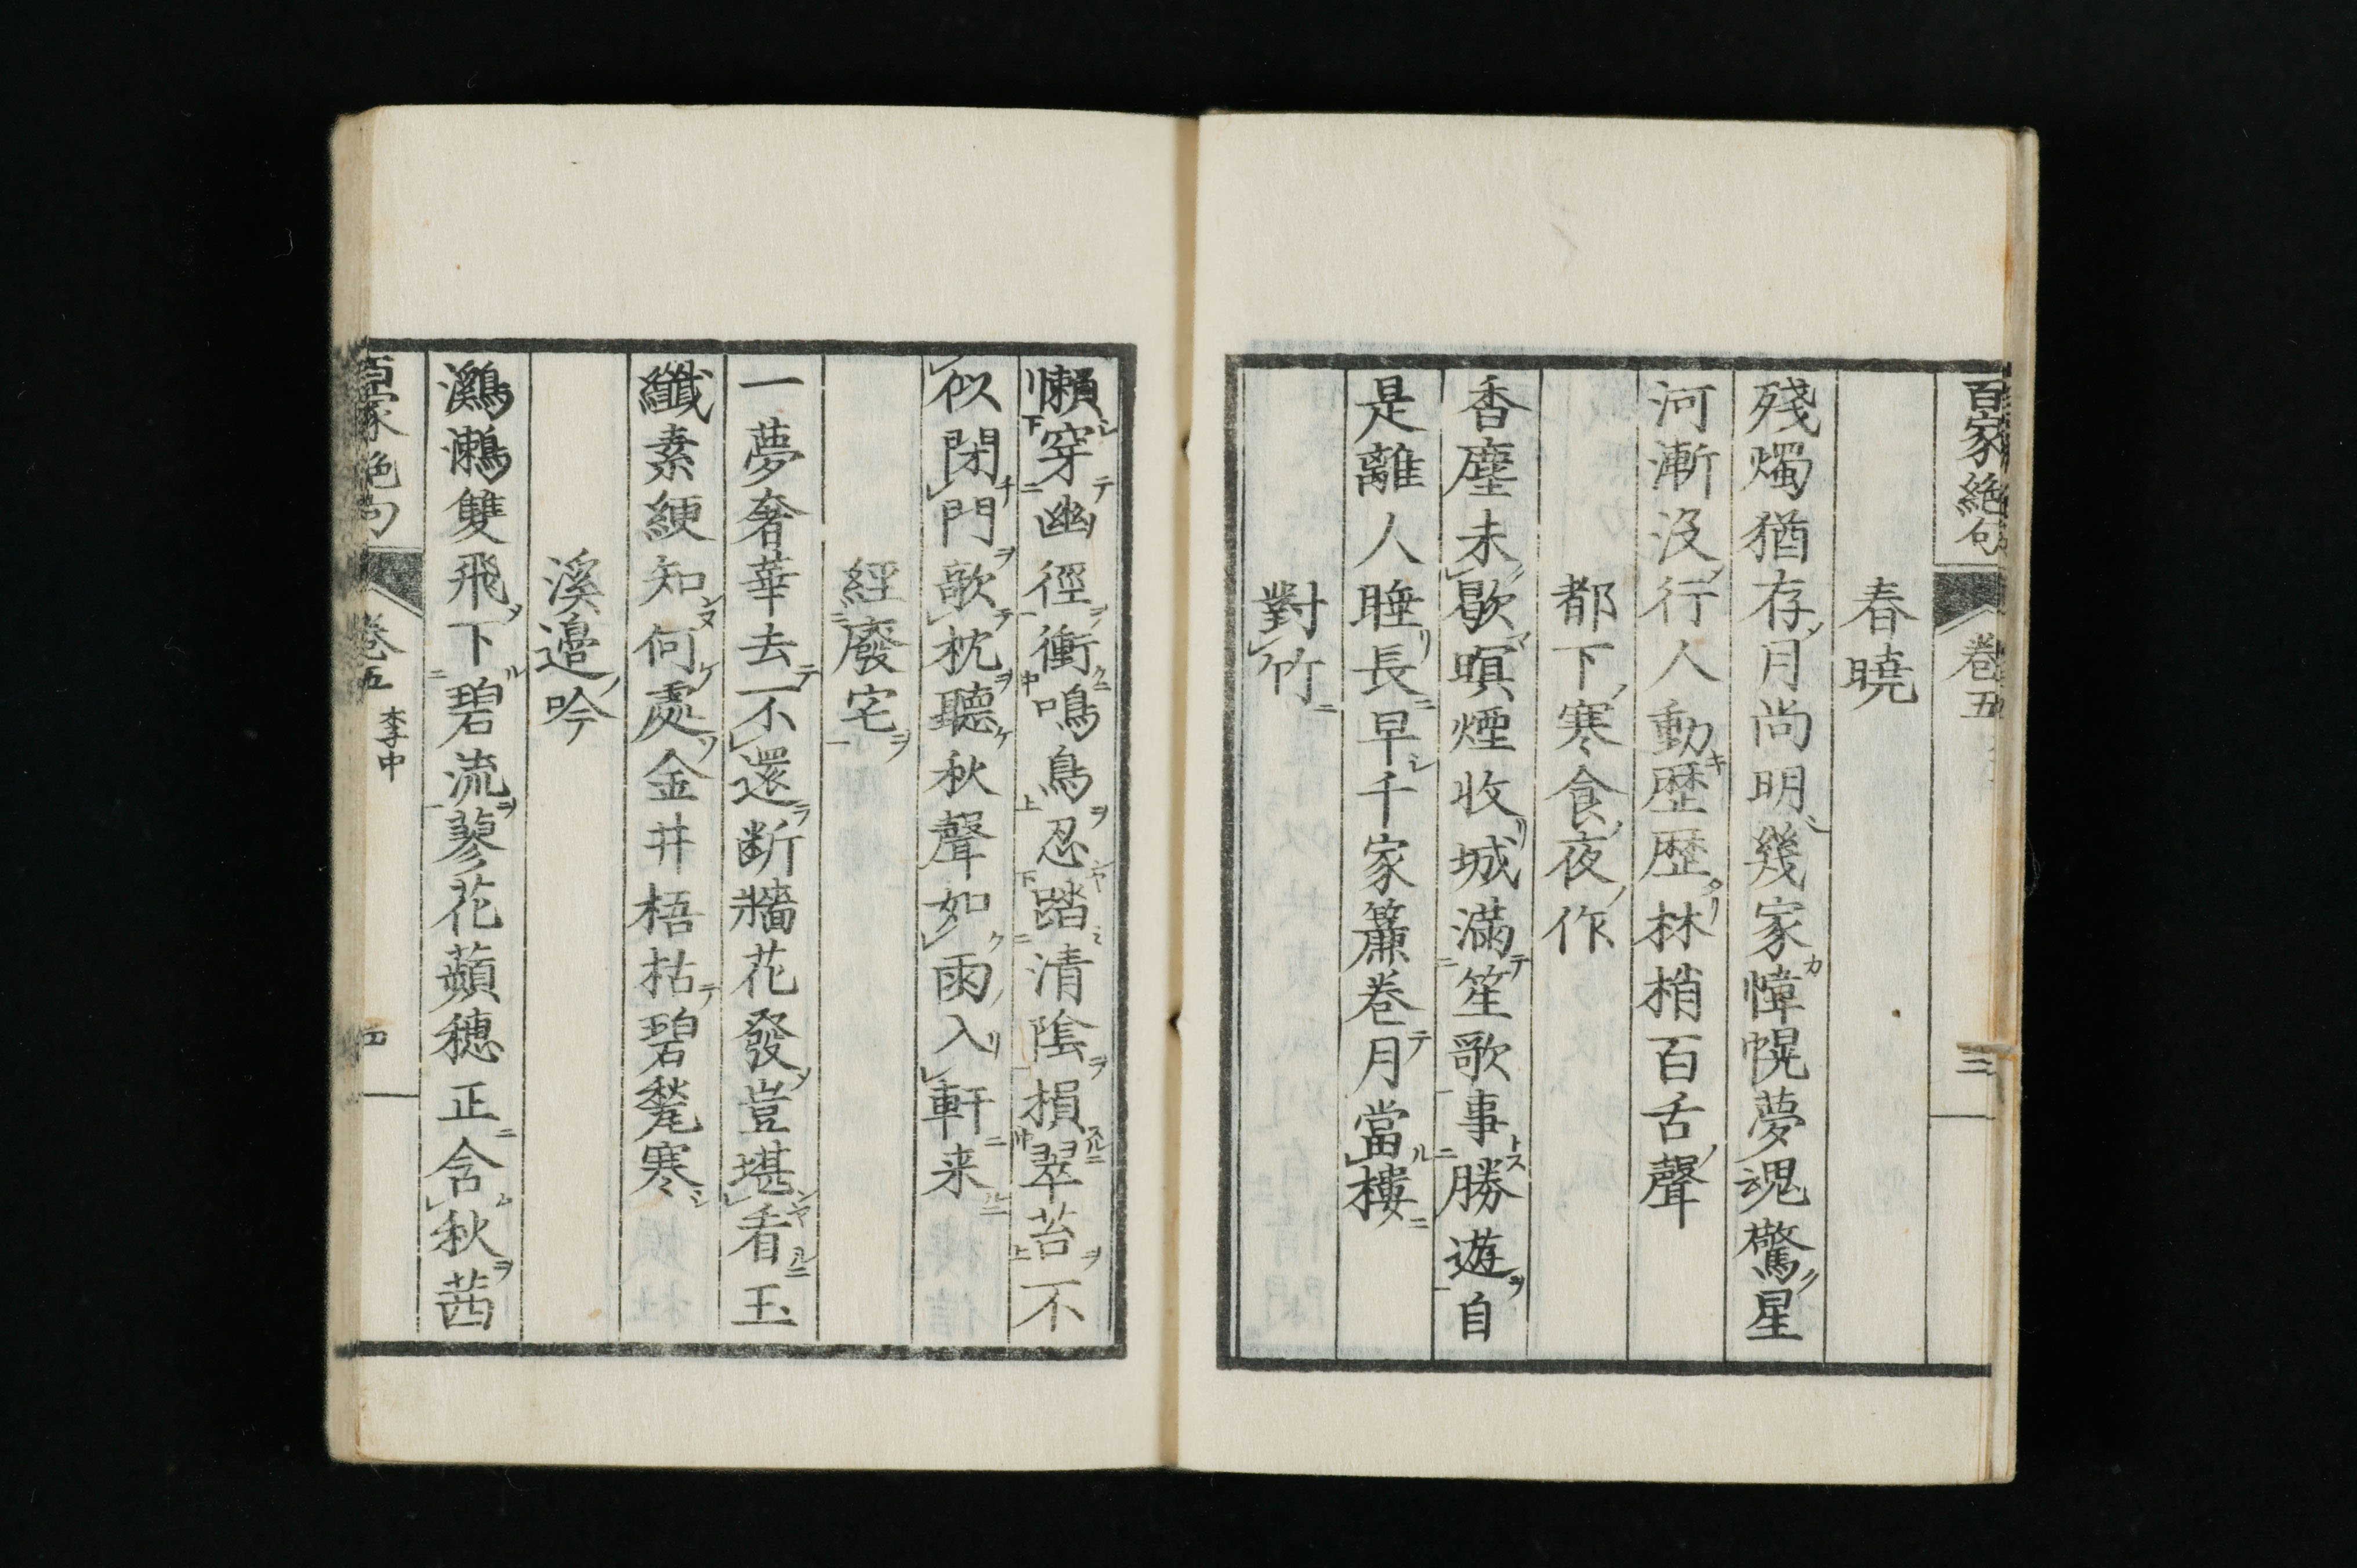 百家絶句 卷五 三
春曉
殘燭猶存月尚明幾家幃幌夢魂驚星
河漸沒行人動歷歷林梢百舌聲
都下寒食夜作
香塵未歇暝煙收城滿笙歌事勝遊自
是離人睡長早千家簾卷月當樓
對竹
懶穿幽徑衝鳴鳥忍踏清陰損翠苔不
似閉門欹枕聽秋聲如雨入軒来
經廢宅
一夢奢華去不還断牆花發豈堪看玉
纖素綆知何處金井梧枯碧甃寒
溪邉吟
鸂鶒雙飛下碧流蓼花蘋穗正含秋茜
百家絶句 卷五 李中 四